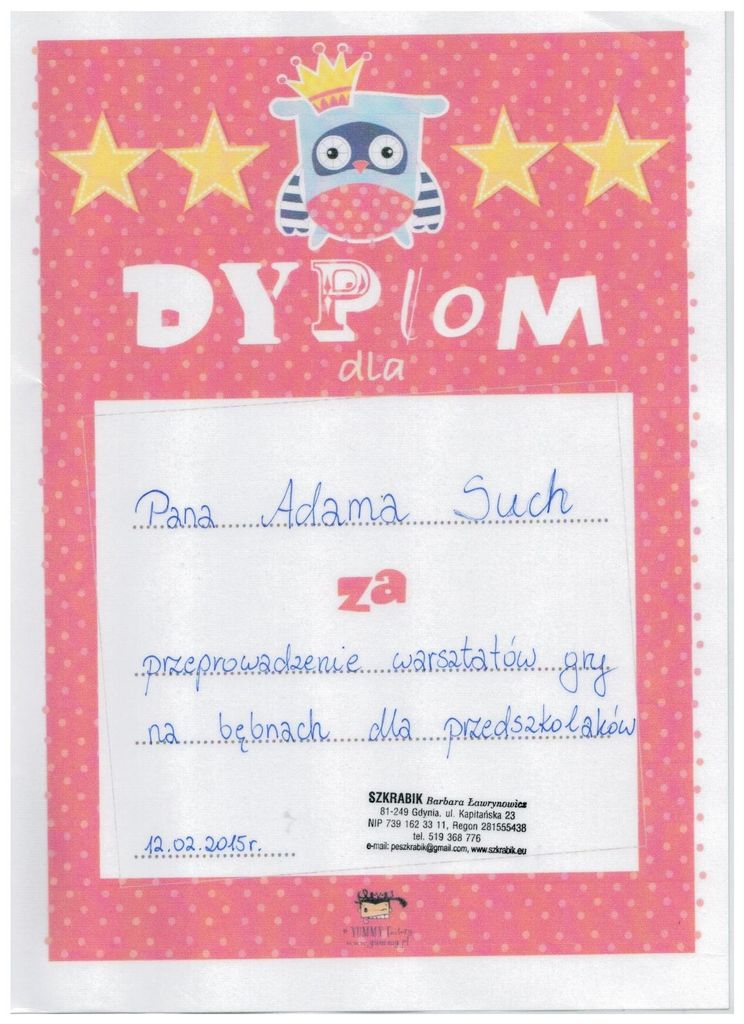 DYPlOM
dla
Pana Adama Such
za
przeprowadzenie warsztatów gry
na bębnach dla przedszkolaków
SZKRABIK Barbara Ławrynowicz
81-249 Gdynia, ul. Kapitańska 23
NIP 739 162 33 11, Regon 281555438
tel. 519 368 776
e-mail: peszkrabik@gmail.com, www.szkrabik.eu
12.02.2015r.
YUMMY